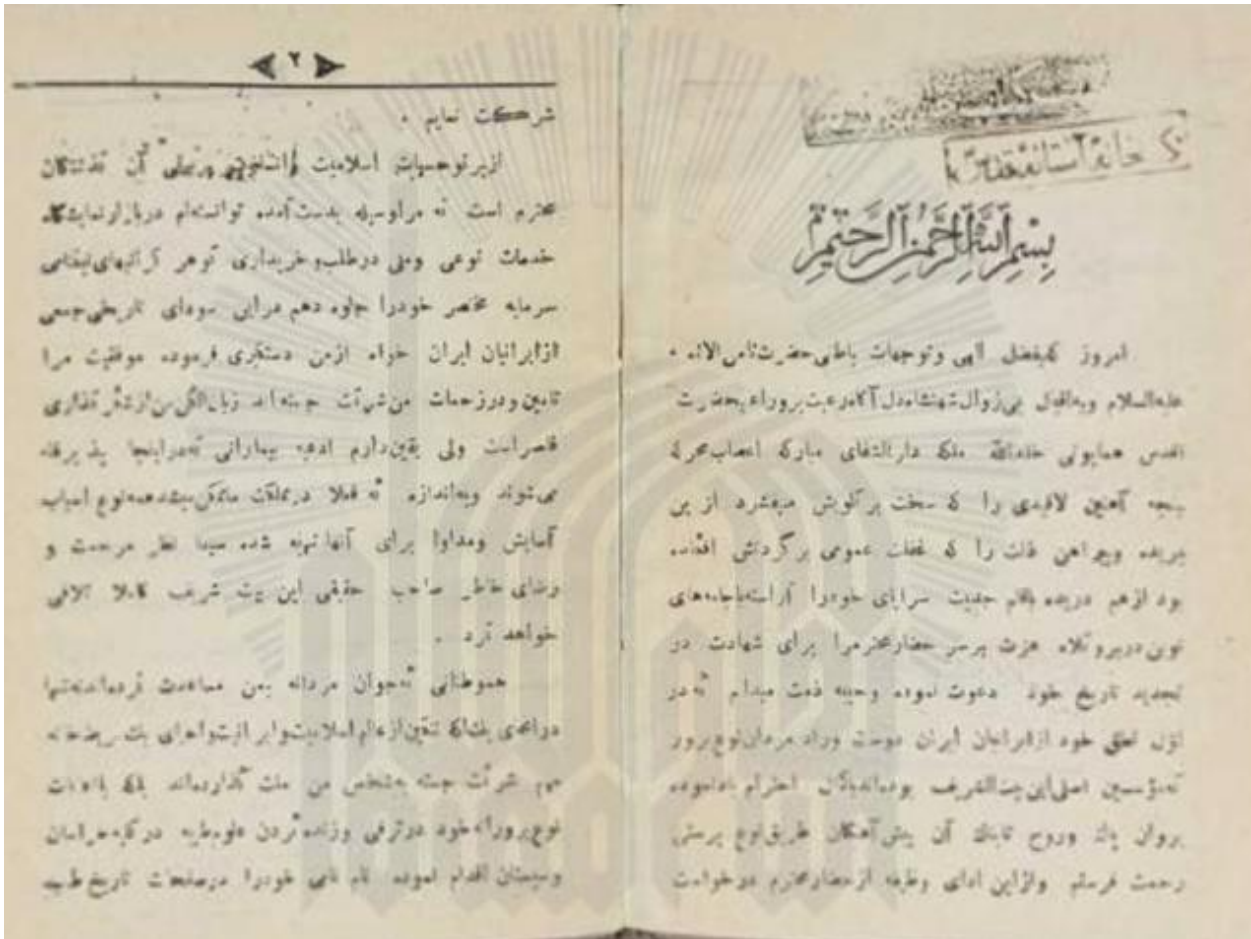 بسم الله الرحمن الرحیم
امروز که بفضل الهی وتوجهات باطنی حضرت ثامن الائمه
علیه السلام وبه اقبال بی زوال شهنشاه دل آگاه رعیت پرور اعلیحضرت
اقدس همایونی خلدالله ملکه دارالشفای مبارکه اعصاب محرکه
پنجه آهنین لاقیدی را که سخت بر گلویش میفشرد از پی
بریده وپیراهن ذلت را که غفلت عمومی بر گردنش افکنده
بود از هم دریده بقلم جدیت سراپای خودرا آراسته باجامه‌های
نوین دربر وکلاه عزت برسر حضار محترم را برای شهادت در
تجدید تاریخ خود دعوت نموده وجیبه ذمت میدانم که در
اول نطق خود از ایرانیان ایران دوست وراد مردان نوع پرور
که مؤسسین اصلی این بیت الشریف بوده‌اند احترام نموده
بروان پاك وروح تابناك آن پیش آهنگان طریق نوع پرستی
رحمت فرستم وازاین ادای وظیفه از حضار محترم درخواست
۲
شرکت نمایم .
از پرتو حسیات اسلامیت آن گذشتگان
محترم است که مرا وسیله بدست آمده توانسته‌ام دربازار نمایشگاه
خدمات نوعی وملی در طلب وخریداری گوهر گرانبهای نیکنامی
سرمایه مختصر خودرا جلوه دهم دراین سودای تاریخی جمعی
از ایرانیان ایران خواه ازمن دستگیری فرموده موفقیت مرا
تامین ودرزحمات من شرکت جسته‌اند زبان الکن من از تشکر گذاری
قاصر است ولی یقین دارم ادعیه بیمارانی که دراینجا پذیرفته
می شوند وبه اندازه که فعلا در مملکت ما ممکن میشد همه نوع اسباب
آسایش ومداوا برای آنها تهیه شده سیما نظر مرحمت و
رضای خاطر صاحب حقیقی این بیت شریف کاملا تلافی
خواهد کرد .
هموطنانی که جوان مردانه بمن مساعدت کرده‌اند نه تنها
در احیای اسلامیت وایرانیت واحیای یك مریضخانه
مهم شرکت جسته بشخص من منت گذارده‌اند بلکه با
نوع پرورانه خود درترقی وزنده کردن علوم طبیه در کلیه خراسان
وسیستان اقدام نموده نام نامی خودرا درصفحات تاریخ طبیه